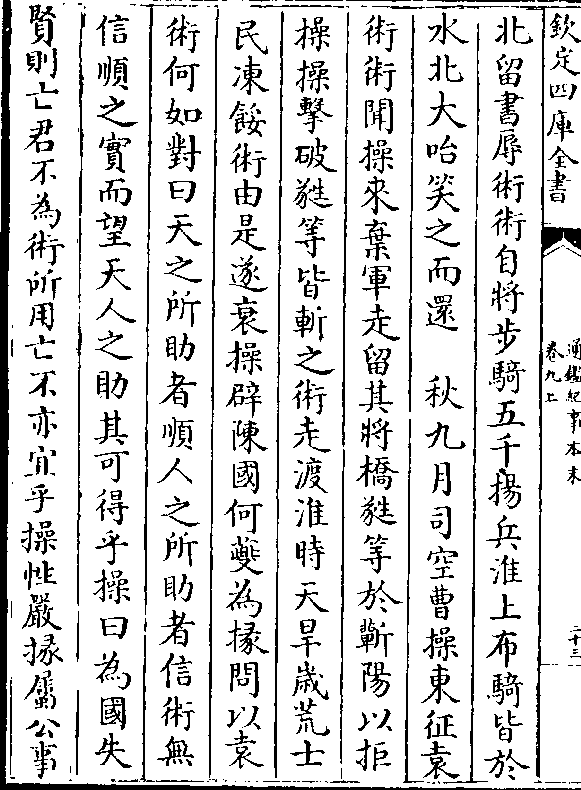 欽定四庫全書
通鑑紀事本末
卷九上
二十三
北留書辱術術自將步騎五千揚兵淮上布騎皆於
水北大咍笑之而還　秋九月司空曹操東征袁
術術聞操來棄軍走留其將橋蕤等於蘄陽以拒
操操擊破蕤等皆斬之術走渡淮時天旱歲荒士
民凍餒術由是遂衰操辟陳國何夔為掾問以袁
術何如對曰天之所助者順人之所助者信術無
信順之實而望天人之助其可得乎操曰為國失
賢則亡君不為術所用亡不亦宜乎操性嚴掾屬公事